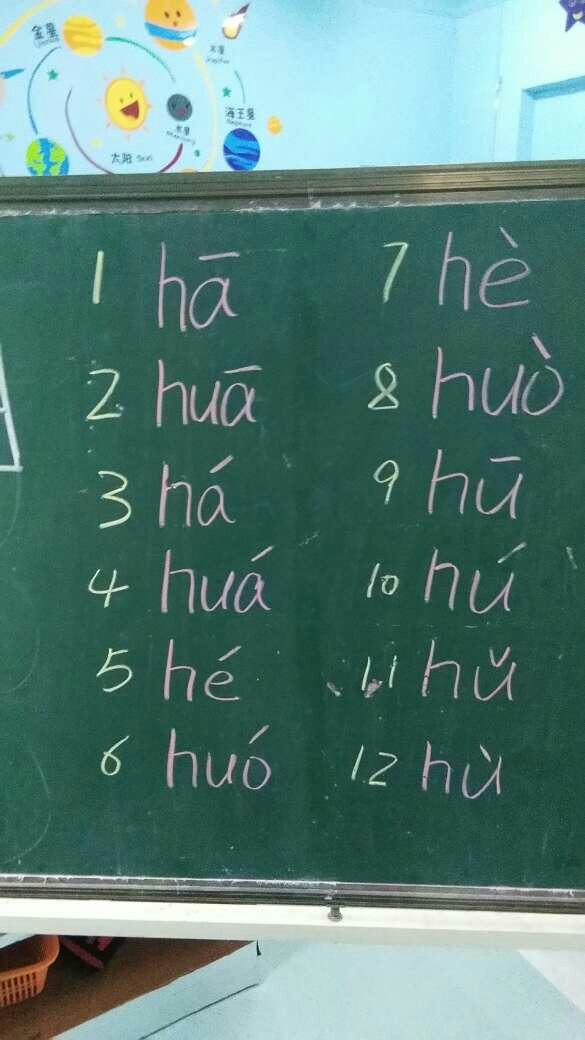 金星
木星
Jupiter
海王星
水星
Mercury
太阳 Sun
1 hā
2 huā
3 há
4 huá
5 hé
6 huó
7 hè
8 huò
9 hū
10 hú
11 hǔ
12 hù